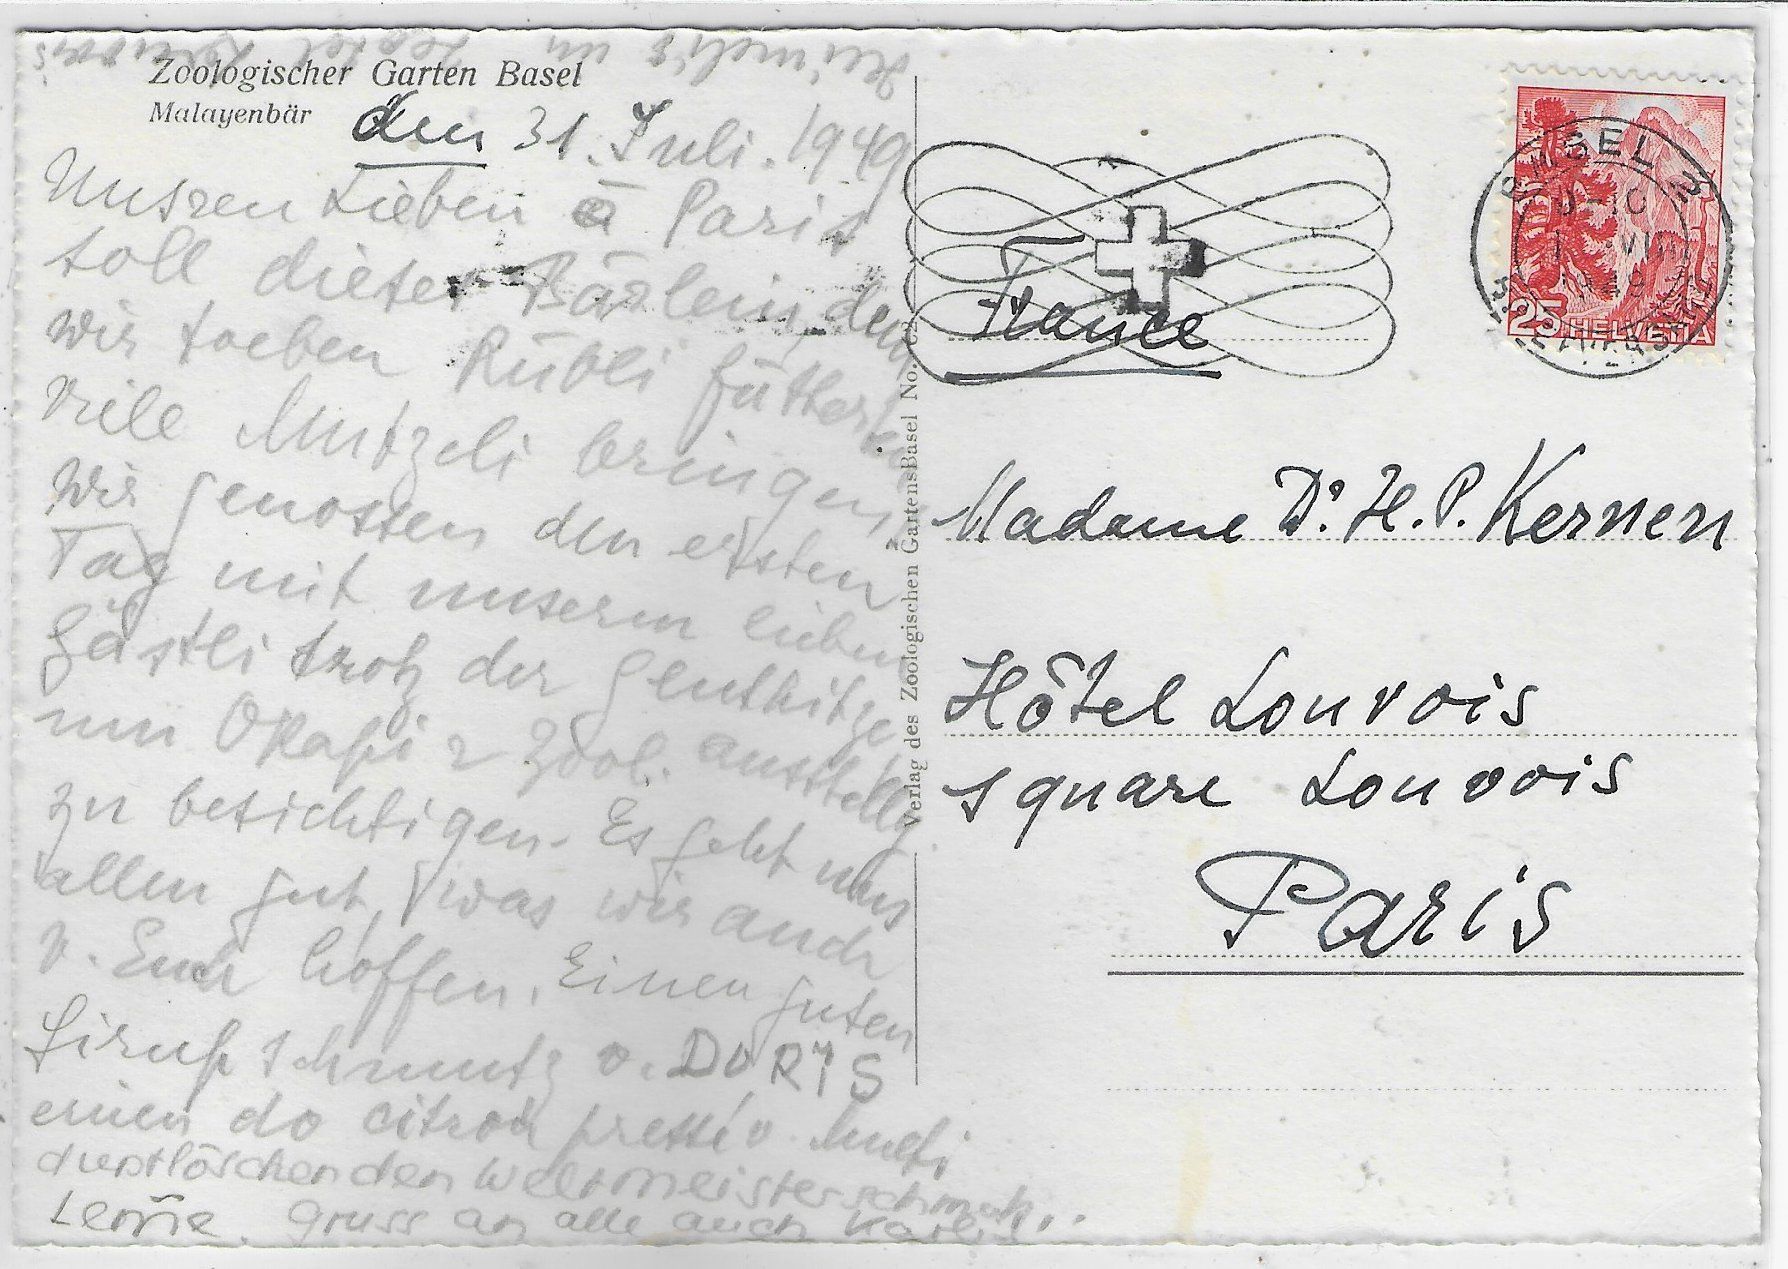 Zoologischer Garten Basel
Malayenbär
den 31. Juli. 1949
Unsren Lieben à Paris
soll dieses Bärlein, dem
wir soeben Rübli fütterten
viele Mutzeli bringen.
Wir genossen den ersten
Tag mit unserm lieben
Gästli trotz der Gluthitze
um Okapi & Zool. ausstellg.
zu besichtigen. Es geht uns
allen gut, was wir auch
v. Euch hoffen. Einen guten
Sirup schmutz v. DORIS
einen do citron pressé v. Mueti
durstlöschenden Weltmeisterschmutz..
Gruss an alle auch
Verlag des Zoologischen GartensBasel No.
France
BASEL 2
25 HELVETIA
Madame Dr. H. P. Kernen
Hôtel Louvois
square Louvois
Paris